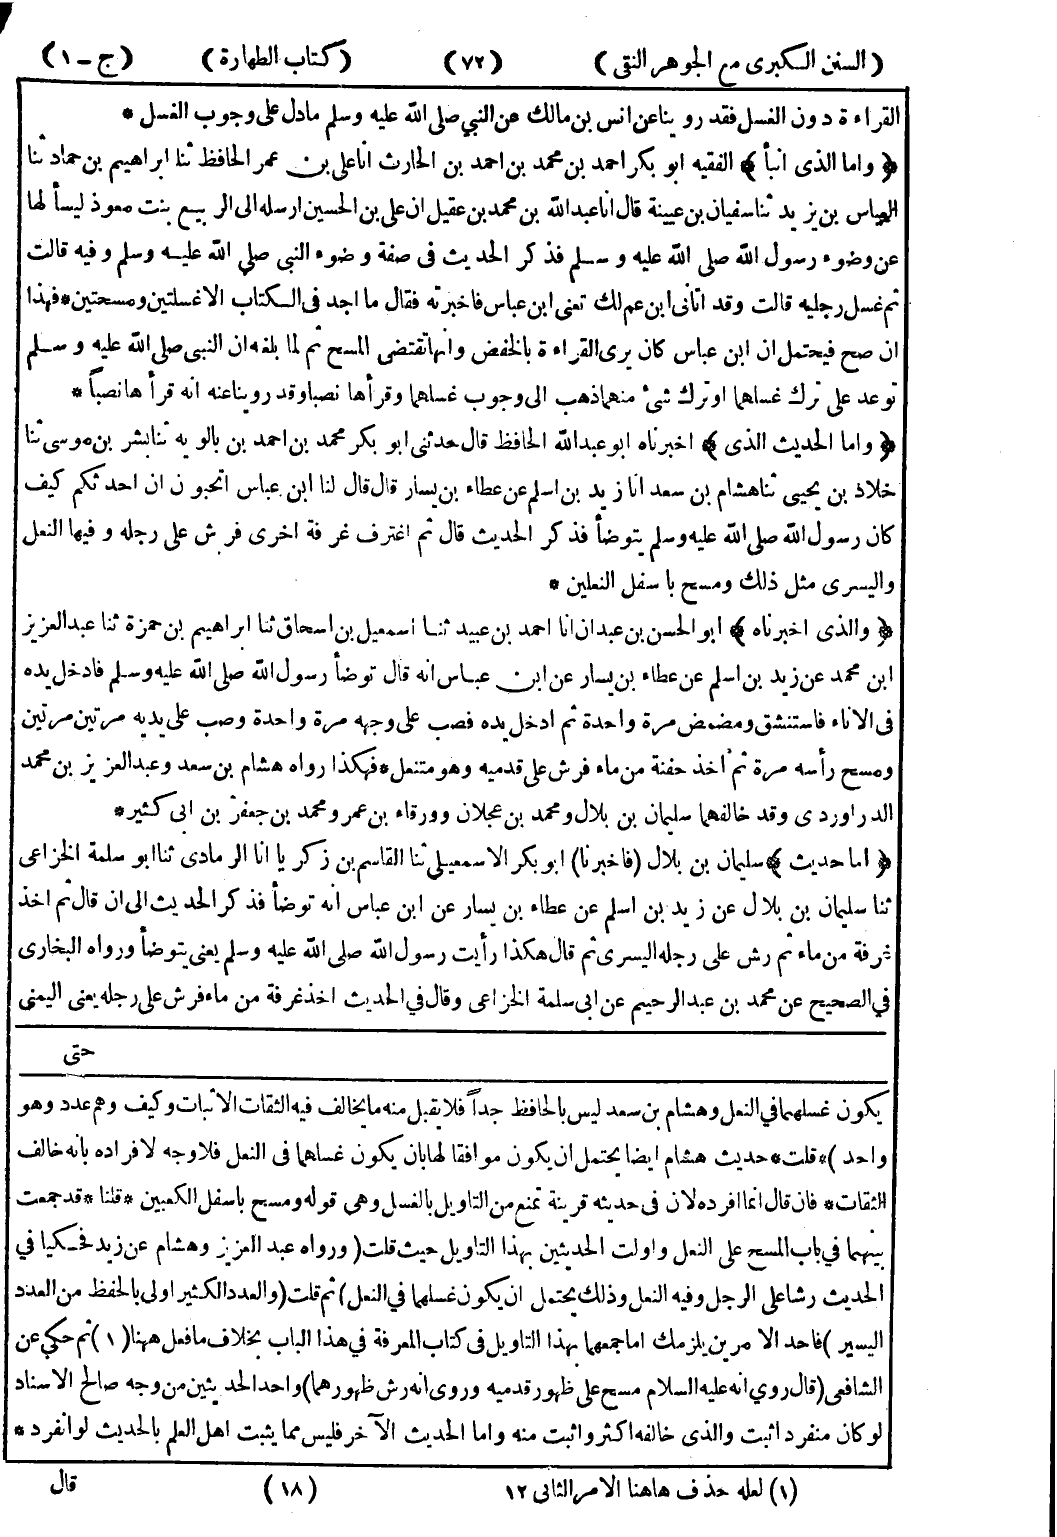 (السنن الكبرى مع الجوهر النقى) (٧٢) (كتاب الطهارة) (ج - ١)
القراءة دون الغسل فقد روينا عن انس بن مالك عن النبي صلى الله عليه وسلم مادل على وجوب الغسل *
﴿ واما الذى انبأ ﴾ الفقيه ابو بكر احمد بن محمد بن احمد بن الحارث انا على بن عمر الحافظ ثنا ابراهيم بن حماد ثنا
العباس بن يزيد ثنا سفيان بن عيينة قال انا عبدالله بن محمد بن عقيل ان على بن الحسين ارسله الى الربيع بنت معوذ ليسألها
عن وضوء رسول الله صلى الله عليه وسلم فذكر الحديث فى صفة وضوء النبى صلى الله عليه وسلم وفيه قالت
ثم غسل رجليه قالت وقد اتانى ابن عم لك تعنى ابن عباس فاخبرته فقال ما اجد فى الكتاب الا غسلتين ومسحتين * فهذا
ان صح فيحتمل ان ابن عباس كان يرى القراءة بالخفض وانها تقتضى المسح ثم لما بلغه ان النبى صلى الله عليه وسلم
توعد على ترك غسلهما او ترك شئ منهما ذهب الى وجوب غسلهما وقرأها نصبا وقد روينا عنه انه قرأها نصباً *
﴿ واما الحديث الذى ﴾ اخبرناه ابو عبدالله الحافظ قال حدثنى ابو بكر محمد بن احمد بن بالويه ثنا بشر بن موسى ثنا
خلاد بن يحيى ثنا هشام بن سعد انا زيد بن اسلم عن عطاء بن يسار قال قال لنا ابن عباس اتحبون ان احدثكم كيف
كان رسول الله صلى الله عليه وسلم يتوضأ فذكر الحديث قال ثم اغترف غرفة اخرى فرش على رجله وفيها النعل
واليسرى مثل ذلك ومسح باسفل النعلين *
﴿ والذى اخبرناه ﴾ ابو الحسن بن عبدان انا احمد بن عبيد ثنا اسمعيل بن اسحاق ثنا ابراهيم بن حمزة ثنا عبدالعزيز
ابن محمد عن زيد بن اسلم عن عطاء بن يسار عن ابن عباس انه قال توضأ رسول الله صلى الله عليه وسلم فادخل يده
فى الاناء فاستنشق ومضمض مرة واحدة ثم ادخل يده فصب على وجهه مرة واحدة وصب على يديه مرتين مرتين
ومسح رأسه مرة ثم اخذ حفنة من ماء فرش على قدميه وهو متنعل * فهكذا رواه هشام بن سعد وعبدالعزيز بن محمد
الدراوردى وقد خالفهما سليمان بن بلال ومحمد بن عجلان وورقاء بن عمر ومحمد بن جعفر بن ابى كثير *
﴿ اما حديث ﴾ سليمان بن بلال (فاخبرنا) ابو بكر الاسمعيلى ثنا القاسم بن زكريا انا الرمادى ثنا ابو سلمة الخزاعى
ثنا سليمان بن بلال عن زيد بن اسلم عن عطاء بن يسار عن ابن عباس انه توضأ فذكر الحديث الى ان قال ثم اخذ
غرفة من ماء ثم رش على رجله اليسرى ثم قال هكذا رأيت رسول الله صلى الله عليه وسلم يعنى يتوضأ ورواه البخارى
في الصحيح عن محمد بن عبدالرحيم عن ابى سلمة الخزاعى وقال في الحديث اخذ غرفة من ماء فرش على رجله يعنى اليمنى
حتى
يكون غسلهما في النعل وهشام بن سعد ليس بالحافظ جداً فلا يقبل منه ما يخالف فيه الثقات الاثبات وكيف وهم عدد وهو
واحد) * قلت * حديث هشام ايضا يحتمل ان يكون موافقا لها بان يكون غسلهما فى النعل فلا وجه لافراده بأنه خالف
الثقات * فان قال انما افرده لان فى حديثه قرينة تمنع من التاويل بالغسل وهى قوله ومسح باسفل الكعبين * قلنا * قد جمعت
بينهما في باب المسح على النعل واولت الحديثين بهذا التاويل حيث قلت (ورواه عبد العزيز وهشام عن زيد فحكيا في
الحديث رشا على الرجل وفيه النعل وذلك يحتمل ان يكون غسلهما في النعل) ثم قلت (والعدد الكثير اولى بالحفظ من العدد
اليسير) فاحد الامرين يلزمك اما جمعهما بهذا التاويل فى كتاب المعرفة في هذا الباب بخلاف ما فعل ههنا (١) ثم حكي عن
الشافعى (قال روي انه عليه السلام مسح على ظهور قدميه وروى انه رش ظهورهما) واحد الحديثين من وجه صالح الاسناد
لو كان منفردا ثبت والذى خالفه اكثر واثبت منه واما الحديث الآخر فليس مما يثبت اهل العلم بالحديث لو انفرد *
(١) لعله حذف هاهنا الامر الثانى ١٢ (١٨) قال